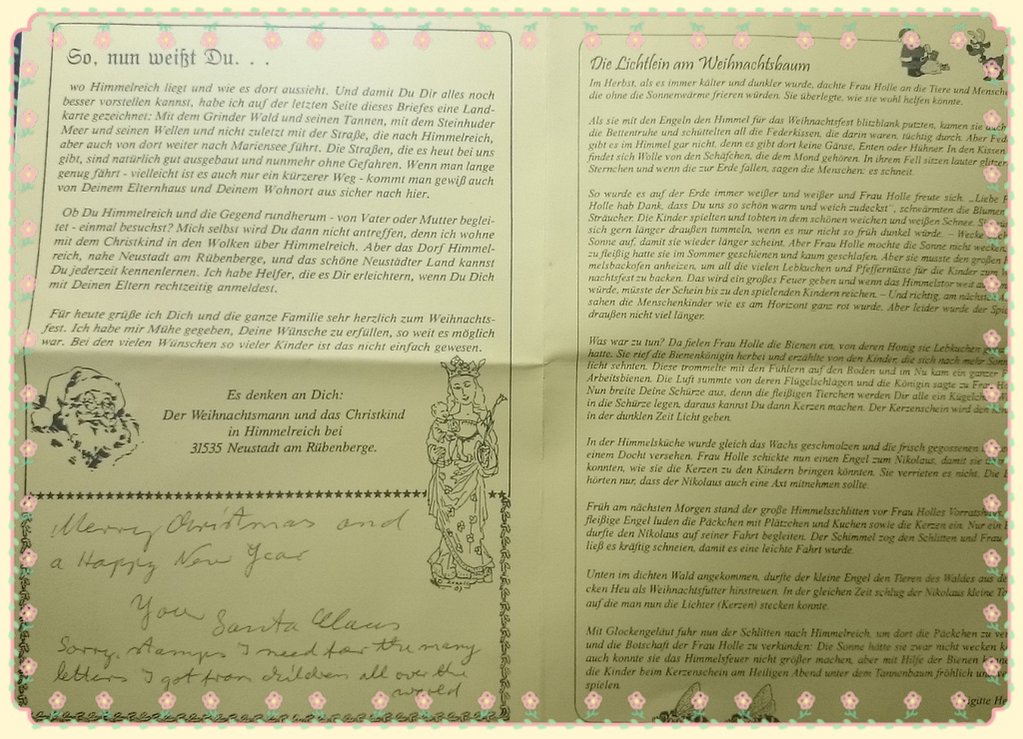 So, nun weißt Du. . .
wo Himmelreich liegt und wie es dort aussieht. Und damit Du Dir alles noch
besser vorstellen kannst, habe ich auf der letzten Seite dieses Briefes eine Land-
karte gezeichnet: Mit dem Grinder Wald und seinen Tannen, mit dem Steinhuder
Meer und seinen Wellen und nicht zuletzt mit der Straße, die nach Himmelreich,
aber auch von dort weiter nach Mariensee führt. Die Straßen, die es heut bei uns
gibt, sind natürlich gut ausgebaut und nunmehr ohne Gefahren. Wenn man lange
genug fährt - vielleicht ist es auch nur ein kürzerer Weg - kommt man gewiß auch
von Deinem Elternhaus und Deinem Wohnort aus sicher nach hier.
Ob Du Himmelreich und die Gegend rundherum - von Vater oder Mutter beglei-
tet - einmal besuchst? Mich selbst wirst Du dann nicht antreffen, denn ich wohne
mit dem Christkind in den Wolken über Himmelreich. Aber das Dorf Himmel-
reich, nahe Neustadt am Rübenberge, und das schöne Neustädter Land kannst
Du jederzeit kennenlernen. Ich habe Helfer, die es Dir erleichtern, wenn Du Dich
mit Deinen Eltern rechtzeitig anmeldest.
Für heute grüße ich Dich und die ganze Familie sehr herzlich zum Weihnachts-
fest. Ich habe mir Mühe gegeben, Deine Wünsche zu erfüllen, so weit es möglich
war. Bei den vielen Wünschen so vieler Kinder ist das nicht einfach gewesen.
Es denken an Dich:
Der Weihnachtsmann und das Christkind
in Himmelreich bei
31535 Neustadt am Rübenberge.
Merry Christmas and
a Happy New Year
Your Santa Claus
Sorry, stamps I need for the many
letters I got from children all over the
world
Die Lichtlein am Weihnachtsbaum
Im Herbst, als es immer kälter und dunkler wurde, dachte Frau Holle an die Tiere und
die ohne die Sonnenwärme frieren würden. Sie überlegte, wie sie wohl helfen könnte.
Als sie mit den Engeln den Himmel für das Weihnachtsfest blitzblank putzten, kamen sie auch
die Bettentruhe und schüttelten all die Federkissen, die darin waren, tüchtig durch. Aber
gibt es im Himmel gar nicht, denn es gibt dort keine Gänse, Enten oder Hühner. In den Kissen
findet sich Wolle von den Schäfchen, die dem Mond gehören. In ihrem Fell sitzen lauter
Sternchen und wenn die zur Erde fallen, sagen die Menschen: es schneit.
So wurde es auf der Erde immer weißer und weißer und Frau Holle freute sich. „Liebe
Holle hab Dank, dass Du uns so schön warm und weich zudeckst", schwärmten die Blumen
Sträucher. Die Kinder spielten und tobten in dem schönen weichen und weißen Schnee.
sich gern länger draußen tummeln, wenn es nur nicht so früh dunkel würde. – Wecke
Sonne auf, damit sie wieder länger scheint. Aber Frau Holle mochte die Sonne nicht wecken,
zu fleißig hatte sie im Sommer geschienen und kaum geschlafen. Aber sie musste den großen
melsbackofen anheizen, um all die vielen Lebkuchen und Pfeffernüsse für die Kinder zum
nachtsfest zu backen. Das wird ein großes Feuer geben und wenn das Himmelstor weit
würde, müsste der Schein bis zu den spielenden Kindern reichen. – Und richtig, am nächsten
sahen die Menschenkinder wie es am Horizont ganz rot wurde. Aber leider wurde der
draußen nicht viel länger.
Was war zu tun? Da fielen Frau Holle die Bienen ein, von deren Honig sie Lebkuchen
hatte. Sie rief die Bienenkönigin herbei und erzählte von den Kinder, die sich nach mehr
licht sehnten. Diese trommelte mit den Fühlern auf den Boden und im Nu kam ein ganzer
Arbeitsbienen. Die Luft summte von deren Flügelschlägen und die Königin sagte zu Frau
Nun breite Deine Schürze aus, denn die fleißigen Tierchen werden Dir alle ein Kügelchen
in die Schürze legen, daraus kannst Du dann Kerzen machen. Der Kerzenschein wird den
in der dunklen Zeit Licht geben.
In der Himmelsküche wurde gleich das Wachs geschmolzen und die frisch gegossenen
einem Docht versehen. Frau Holle schickte nun einen Engel zum Nikolaus, damit sie
konnten, wie sie die Kerzen zu den Kindern bringen könnten. Sie verrieten es nicht. Die
hörten nur, dass der Nikolaus auch eine Axt mitnehmen sollte.
Früh am nächsten Morgen stand der große Himmelsschlitten vor Frau Holles
fleißige Engel luden die Päckchen mit Plätzchen und Kuchen sowie die Kerzen ein. Nur ein
durfte den Nikolaus auf seiner Fahrt begleiten. Der Schimmel zog den Schlitten und Frau
ließ es kräftig schneien, damit es eine leichte Fahrt wurde.
Unten im dichten Wald angekommen, durfte der kleine Engel den Tieren des Waldes aus
cken Heu als Weihnachtsfutter hinstreuen. In der gleichen Zeit schlug der Nikolaus kleine
auf die man nun die Lichter (Kerzen) stecken konnte.
Mit Glockengeläut fuhr nun der Schlitten nach Himmelreich, um dort die Päckchen zu
und die Botschaft der Frau Holle zu verkünden: Die Sonne hätte sie zwar nicht wecken
auch konnte sie das Himmelsfeuer nicht größer machen, aber mit Hilfe der Bienen
die Kinder beim Kerzenschein am Heiligen Abend unter dem Tannenbaum fröhlich und
spielen.